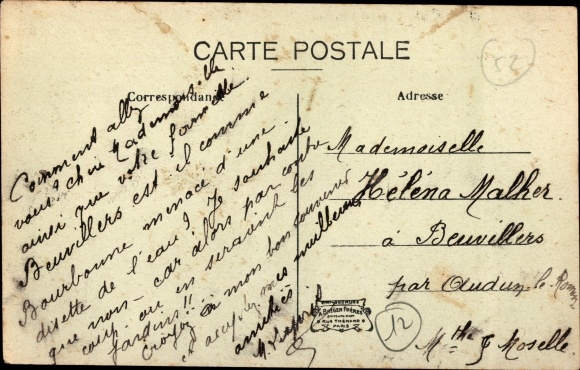 CARTE POSTALE
Correspondance
Adresse
52
Comment allez
vous? chère Mademoiselle.
ainsi que votre famille.
Beuvillers est il comme
Bourbonne menacé d'une
disette de l'eau? Je souhaite
que non - car alors par contre
coup où en seraient les
jardins!!
Croyez à mon bon souvenir
et acceptez mes meilleures
amitiés
Mademoiselle
Héléna Malher.
à Beuvillers
par Audun-le-Roman
Mthe & Moselle.
PHOTOTYPIE
BAUER FRÈRES
RUE THÉNARD
PARIS
12